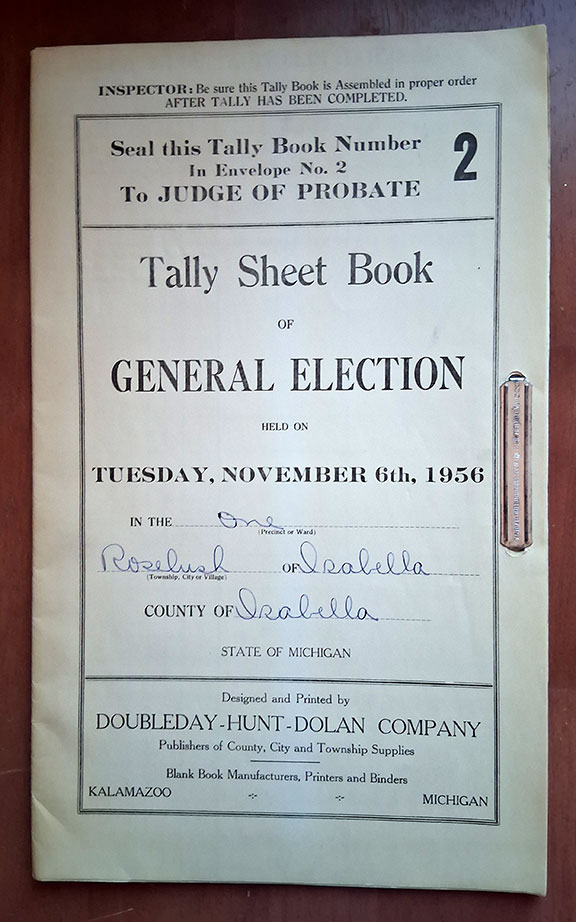 INSPECTOR: Be sure this Tally Book is Assembled in proper order
AFTER TALLY HAS BEEN COMPLETED.
Seal this Tally Book Number
In Envelope No. 2
To JUDGE OF PROBATE
2
Tally Sheet Book
OF
GENERAL ELECTION
HELD ON
TUESDAY, NOVEMBER 6th, 1956
IN THE One
(Precinct or Ward)
Rosebush OF Isabella
(Township, City or Village)
COUNTY OF Isabella
STATE OF MICHIGAN
Designed and Printed by
DOUBLEDAY-HUNT-DOLAN COMPANY
Publishers of County, City and Township Supplies
Blank Book Manufacturers, Printers and Binders
KALAMAZOO MICHIGAN